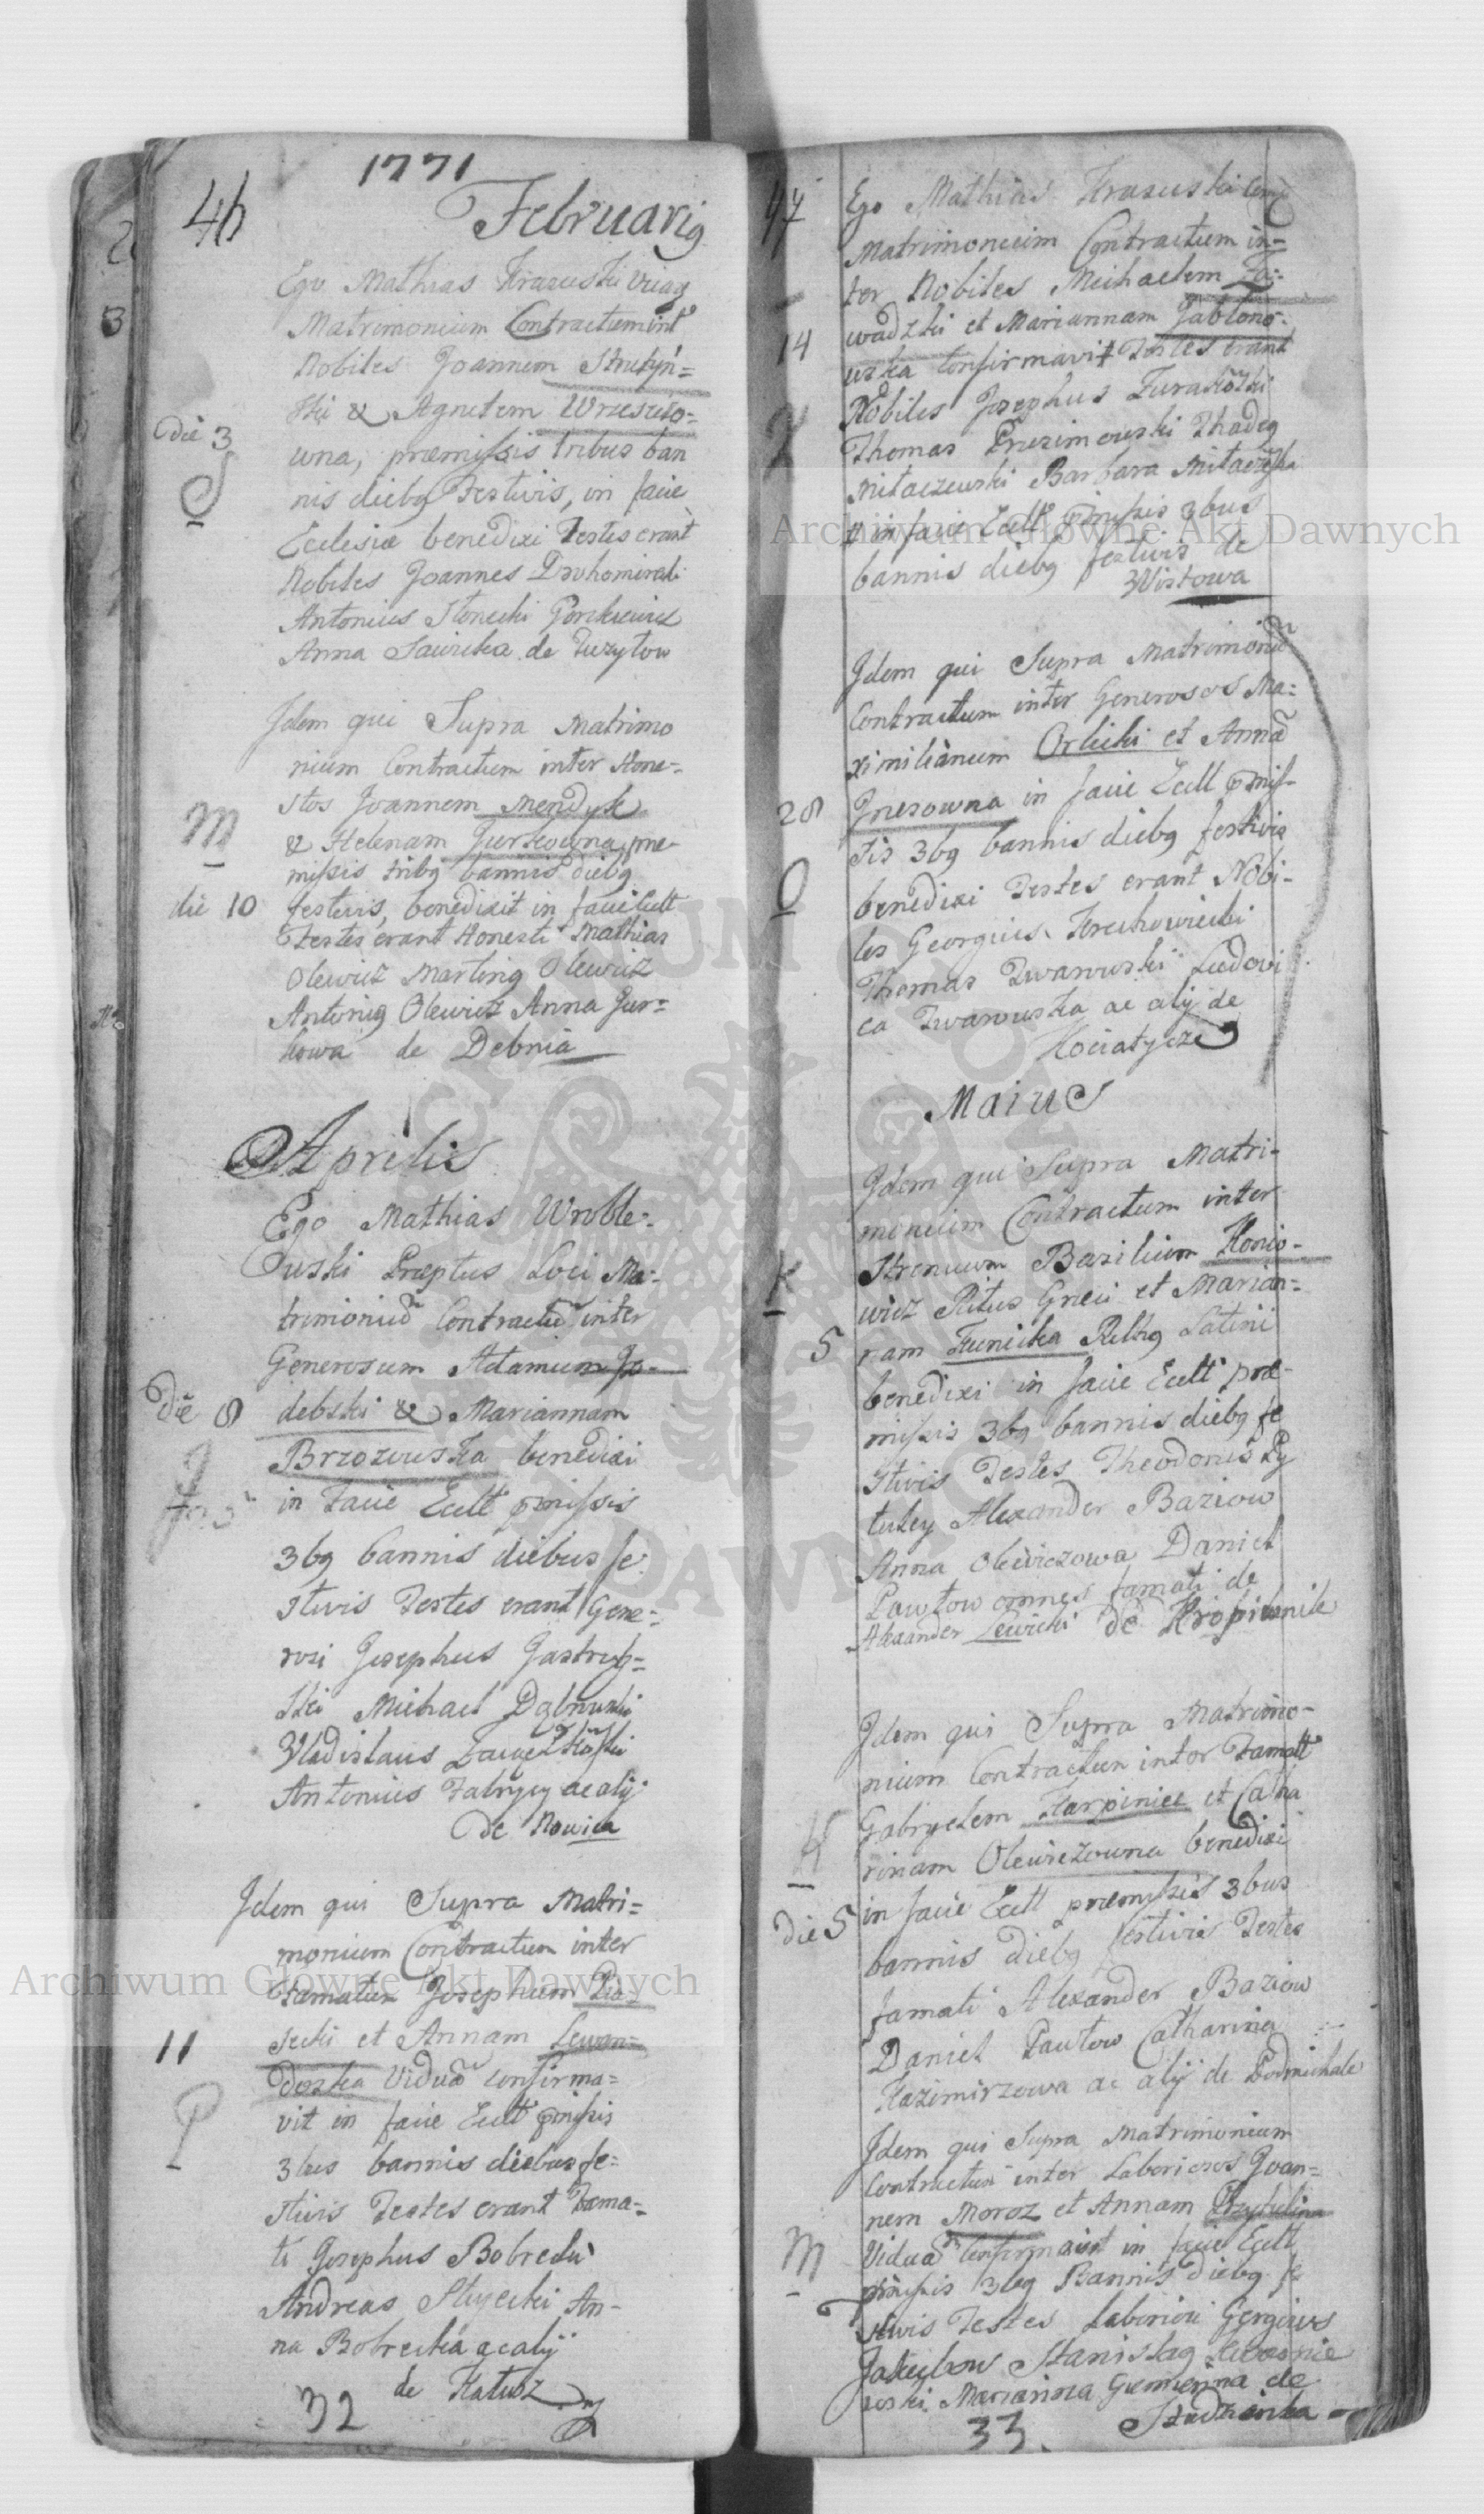 1771
46
Februari9
Ego Mathias Krasuski Vicar9
Matrimonium Contractum int
Nobiles Joannem Strutyń=
ski & Agnetem Wrzescio=
die 3
wna, præmissis tribus ban
S
nis dieb9 Festivis, in facie
Ecclesiæ benedixi Testes erant
Nobiles Joannes Dochomirski
Antonius Słonecki
Anna Sawicka de Tuzyłow
Idem qui Supra Matrimo
nium Contractum inter Hone=
stos Joannem Mendyk
M
& Helenam Gurkowna, præ-
missis trib9 bannis dieb9
die 10
festivis, benedixit in facie Eccll
Testes erant Honesti Mathias
Olewicz Martin9 Olewicz
Antoni9 Olewicz Anna Gur=
kowa de Debnia
Aprilis
Ego Mathias Wroble-
wski Præptus Loci Ma-
trimoniū Contractū inter
Generosum Adamum Go-
die 8
debski & Mariannam
Brzozowska benedixi
in Facie Eccll pmissis
3b9 bannis diebus fe-
stivis Testes erant Gene-
rosi Josephus Jastrzę=
ski Michael Dąbrowski
Vladislaus
Antonius Fabrycy ac alij
de Nowica
Idem qui Supra Matri=
monium Contractum inter
Famatum Josephum Pia-
11
secki et Annam Lewan=
doska Viduā confirma=
P
vit in facie Eccll pmissis
3bus bannis diebus fe=
stivis Testes erant Fama=
ti Josephus Bobrecki
Andreas Stryecki An-
na Bobrecka ac alij
de Kałusz
32
47
Ego Mathias Krasuski Com
Matrimonium Contractum in=
ter Nobiles Michaelem Za=
14
wadzki et Mariannam Jabłono-
wska confirmavit Testes erant
Nobiles Josephus Turański
Z
Thomas Thade9
Miłaczewski Barbara
# in facie Eccll pmissis 3bus
bannis dieb9 festivis de
Wistowa
Idem qui Supra Matrimoniū
Contractum inter Generosos Ma=
ximilianum Orlicki et Annā
28
in facie Eccll pmis-
sis 3b9 bannis dieb9 festivis
O
benedixi Testes erant Nobi-
les Georgius Krechowiecki
Thomas Iwanwski Ludovi
ca Iwanwska ac alij de
Kociatycze
Maius
Idem qui Supra Matri-
monium Contractum inter
K
Strenuum Basilium Konio-
wicz Ritus Græci et Marian=
5
nam Kunicka Rith9 Latini
benedixi in facie Eccll præ-
missis 3b9 bannis dieb9 fe
stivis Testes Theodorus Py
tuley Alexander Baziow
Anna Olewiczowa Daniel
Pawłow omnes famati de
Alexander Lewicki de Kropiwnik
Idem qui Supra Matrimo-
nium Contractum inter Famatt
Gabryelem Karpiniec et Catha
K
rinam Olewiczowna benedixi
die 5
in facie Eccll præmissis 3bus
bannis dieb9 festivis Testes
famati Alexander Baziow
Daniel Pawłow Catharina
Kazimirzowa ac alij de Podmichale
Idem qui Supra Matrimonium
Contractum inter Laboriosos Joan=
nem Moroz et Annam Przytulina
M
Viduā confirmavit in facie Eccll
pmissis 3b9 Bannis dieb9 fe
stivis Testes Laboriosi Gergius
Jakubow Stanislag
Marianna de
Studzianka
33
Archiwum Głowne Akt Dawnych
Archiwum Głowne Akt Dawnych
ARCHIWUM GŁÓWNE AKT DAWNYCH